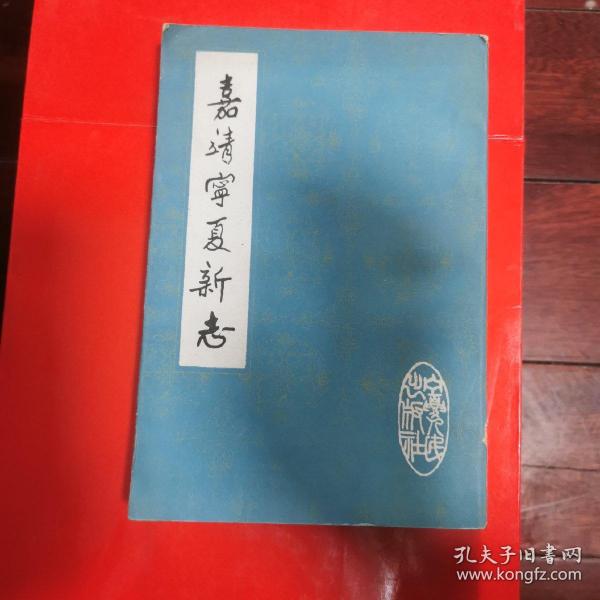 嘉靖宁夏新志
宁夏人民
出版社
孔夫子旧书网
www.kongfz.com